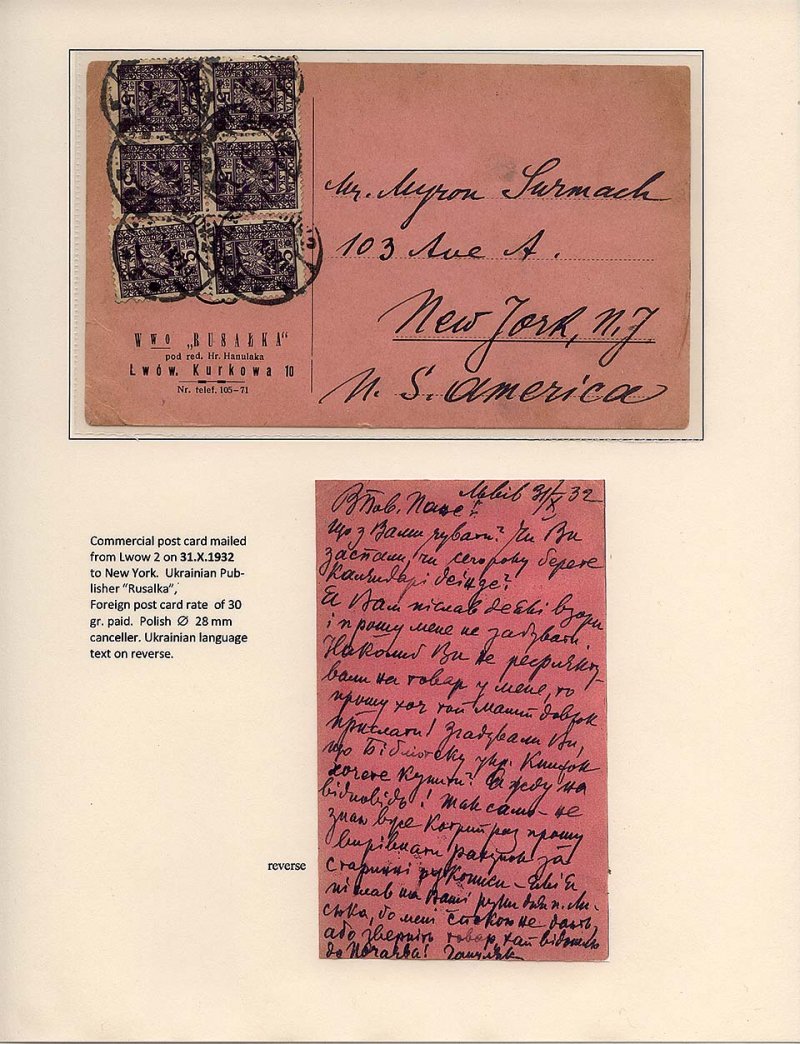 Mr. Myron Surmach
103 Ave A.
New York, N.J.
U. S. America
WWO „RUSAŁKA"
pod red. Hr. Hanulaka
Lwów, Kurkowa 10
Nr. telef. 105-71
Commercial post card mailed
from Lwow 2 on 31.X.1932
to New York. Ukrainian Pub-
lisher "Rusalka",
Foreign post card rate of 30
gr. paid. Polish Ø 28 mm
canceller. Ukrainian language
text on reverse.
reverse
Львів 31/X 32
ВПов. Пане!
Що з Вами чувати? Чи Ви
застали, чи сегороку берете
Календарі деінде?
Я Вам післав деякі взори
і прошу мене не
Наколиб Ви не
вали на товар у мене, то
прошу хоч той малий довжок
прислати! Згадували Ви,
що Бібліотеку укр. Книжок
хочете купити? Я жду на
відповідь! Так само не
знаю вже Котрий раз прошу
вирівнати рахунок за
старинні рукописи
післав на Ваші руки для п.
бо мені спокою не дають,
або зверніть товар, хай відошлю
до Почаєва! Гануляк